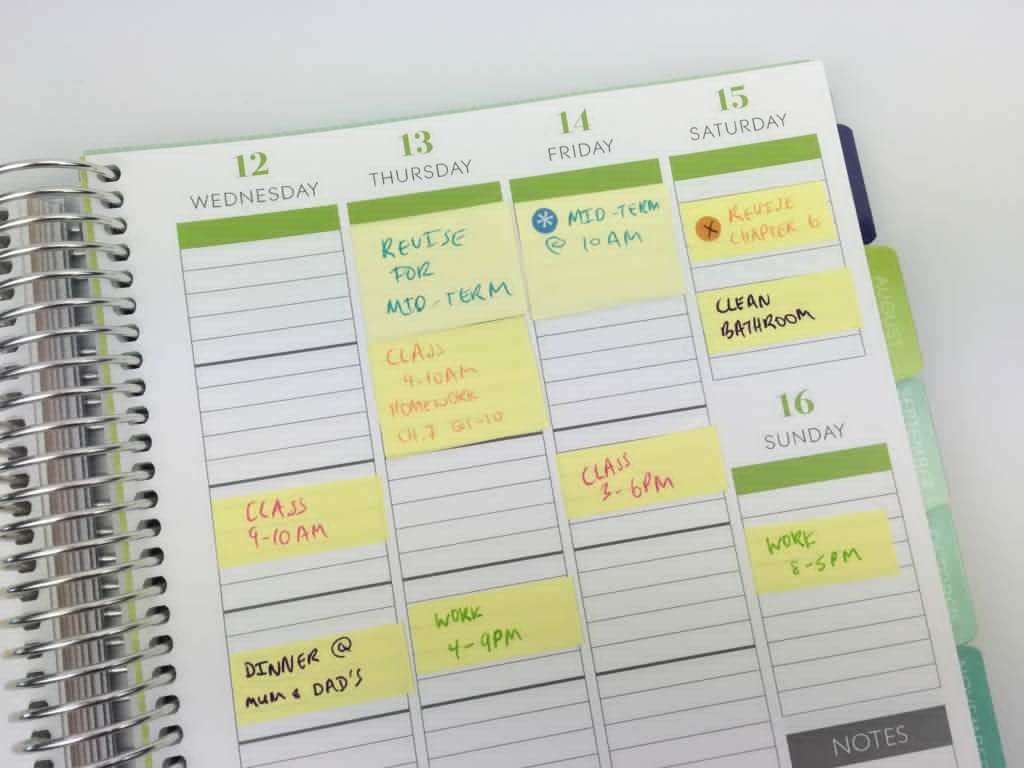 12
WEDNESDAY
CLASS
9-10AM
DINNER @
MUM & DAD'S
13
THURSDAY
REVISE
FOR
MID-TERM
CLASS
9-10AM
HOMEWORK
CH.7 Q1-10
WORK
4-9PM
14
FRIDAY
MID-TERM
@ 10AM
CLASS
3-6PM
15
SATURDAY
REVISE
CHAPTER 6
CLEAN
BATHROOM
16
SUNDAY
WORK
8-5PM
NOTES
AUGUST
SEPTEMBER